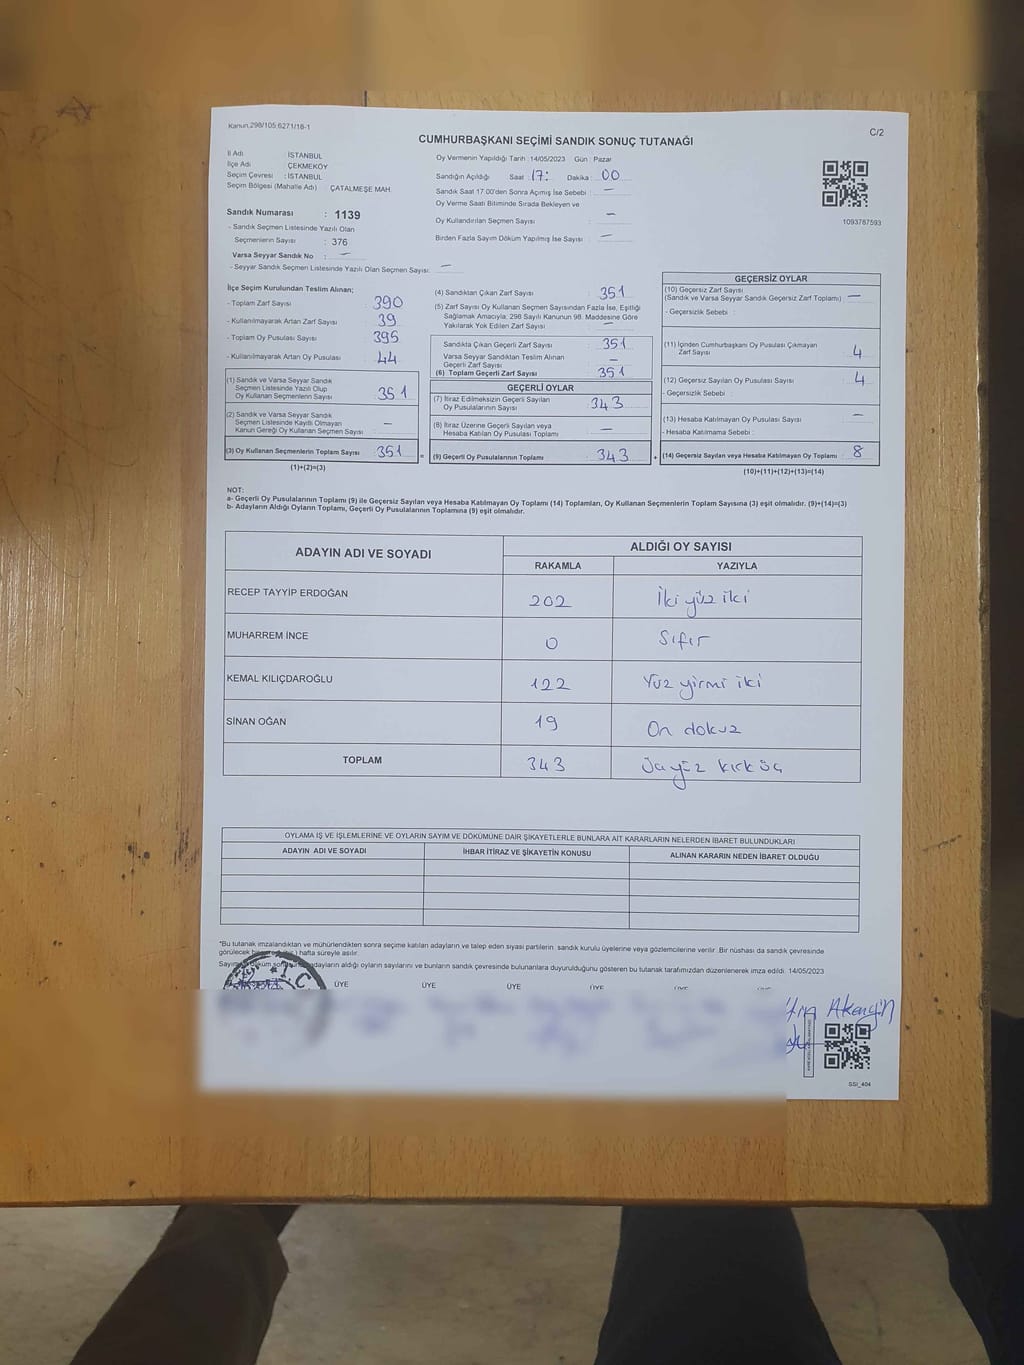 Kanun.298/105;6271/18-1
C/2
CUMHURBAŞKANI SEÇİMİ SANDIK SONUÇ TUTANAĞI
İl Adı : İSTANBUL
İlçe Adı : ÇEKMEKÖY
Seçim Çevresi : İSTANBUL
Seçim Bölgesi (Mahalle Adı) : ÇATALMEŞE MAH.
Sandık Numarası : 1139
- Sandık Seçmen Listesinde Yazılı Olan
Seçmenlerin Sayısı : 376
Varsa Seyyar Sandık No : —
- Seyyar Sandık Seçmen Listesinde Yazılı Olan Seçmen Sayısı: —
Oy Vermenin Yapıldığı Tarih :14/05/2023 Gün : Pazar
Sandığın Açıldığı Saat : 17: Dakika : 00
Sandık Saat 17.00'den Sonra Açımış İse Sebebi : —
Oy Verme Saati Bitiminde Sırada Bekleyen ve
Oy Kullandırılan Seçmen Sayısı : —
Birden Fazla Sayım Döküm Yapılmış İse Sayısı : —
1093787593
İlçe Seçim Kurulundan Teslim Alınan;
- Toplam Zarf Sayısı : 390
- Kullanılmayarak Artan Zarf Sayısı : 39
- Toplam Oy Pusulası Sayısı : 395
- Kullanılmayarak Artan Oy Pusulası : 44
(1) Sandık ve Varsa Seyyar Sandık
Seçmen Listesinde Yazılı Olup
Oy Kullanan Seçmenlerin Sayısı : 351
(2) Sandık ve Varsa Seyyar Sandık
Seçmen Listesinde Kayıtlı Olmayan
Kanun Gereği Oy Kullanan Seçmen Sayısı : —
(3) Oy Kullanan Seçmenlerin Toplam Sayısı : 351
(1)+(2)=(3)
=
(4) Sandıktan Çıkan Zarf Sayısı : 351
(5) Zarf Sayısı Oy Kullanan Seçmen Sayısından Fazla İse, Eşitliği
Sağlamak Amacıyla; 298 Sayılı Kanunun 98. Maddesine Göre
Yakılarak Yok Edilen Zarf Sayısı : —
Sandıkta Çıkan Geçerli Zarf Sayısı : 351
Varsa Seyyar Sandıktan Teslim Alınan
Geçerli Zarf Sayısı : —
(6) Toplam Geçerli Zarf Sayısı : 351
GEÇERLİ OYLAR
(7) İtiraz Edilmeksizin Geçerli Sayılan
Oy Pusulalarının Sayısı : 343
(8) İtiraz Üzerine Geçerli Sayılan veya
Hesaba Katılan Oy Pusulası Toplamı : —
(9) Geçerli Oy Pusulalarının Toplamı : 343
+
GEÇERSİZ OYLAR
(10) Geçersiz Zarf Sayısı
(Sandık ve Varsa Seyyar Sandık Geçersiz Zarf Toplamı) : —
- Geçersizlik Sebebi :
(11) İçinden Cumhurbaşkanı Oy Pusulası Çıkmayan
Zarf Sayısı : 4
(12) Geçersiz Sayılan Oy Pusulası Sayısı : 4
- Geçersizlik Sebebi :
(13) Hesaba Katılmayan Oy Pusulası Sayısı : —
- Hesaba Katılmama Sebebi :
(14) Geçersiz Sayılan veya Hesaba Katılmayan Oy Toplamı : 8
(10)+(11)+(12)+(13)=(14)
NOT:
a- Geçerli Oy Pusulalarının Toplamı (9) ile Geçersiz Sayılan veya Hesaba Katılmayan Oy Toplamı (14) Toplamları, Oy Kullanan Seçmenlerin Toplam Sayısına (3) eşit olmalıdır. (9)+(14)=(3)
b- Adayların Aldığı Oyların Toplamı, Geçerli Oy Pusulalarının Toplamına (9) eşit olmalıdır.
ADAYIN ADI VE SOYADI
ALDIĞI OY SAYISI
RAKAMLA YAZIYLA
RECEP TAYYİP ERDOĞAN 202 İki yüz iki
MUHARREM İNCE 0 Sıfır
KEMAL KILIÇDAROĞLU 122 Yüz yirmi iki
SİNAN OĞAN 19 On dokuz
TOPLAM 343 Üçyüz kırk üç
OYLAMA İŞ VE İŞLEMLERİNE VE OYLARIN SAYIM VE DÖKÜMÜNE DAİR ŞİKAYETLERLE BUNLARA AİT KARARLARIN NELERDEN İBARET BULUNDUKLARI
ADAYIN ADI VE SOYADI İHBAR İTİRAZ VE ŞİKAYETİN KONUSU ALINAN KARARIN NEDEN İBARET OLDUĞU
*Bu tutanak imzalandıktan ve mühürlendikten sonra seçime katılan adayların ve talep eden siyasi partilerin sandık kurulu üyelerine veya gözlemcilerine verilir. Bir nüshası da sandık çevresinde
görülecek hafta süreyle asılır.
adayların aldığı oyların sayılarını ve bunların sandık çevresinde bulunanlara duyurulduğunu gösteren bu tutanak tarafımızdan düzenlenerek imza edildi. 14/05/2023
T.C
ÜYE ÜYE ÜYE ÜYE
Akengin
SSI_404